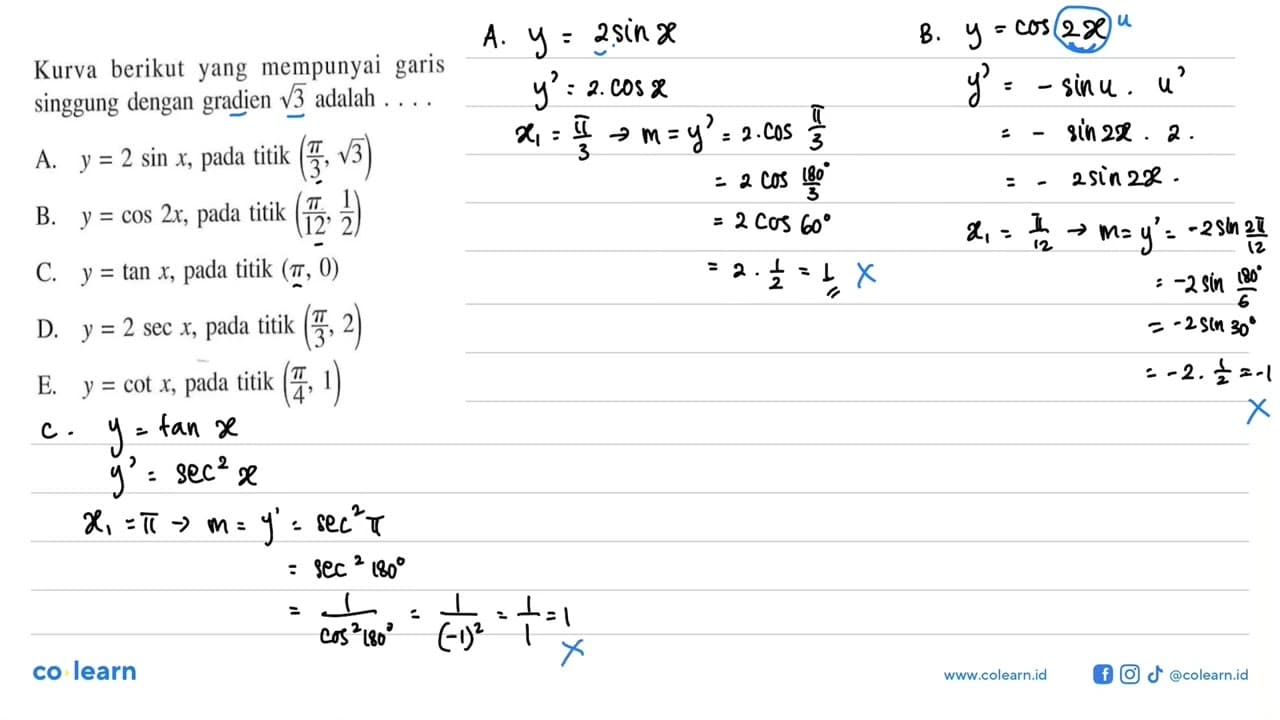 Kurva berikut yang mempunyai garis
singgung dengan gradien √3 adalah . . . .
A. y = 2 sin x, pada titik (π/3, √3)
B. y = cos 2x, pada titik (π/12, 1/2)
C. y = tan x, pada titik (π, 0)
D. y = 2 sec x, pada titik (π/3, 2)
E. y = cot x, pada titik (π/4, 1)
A. y = 2 sin x
y' = 2. cos x
x₁ = π/3 → m = y' = 2. cos π/3
= 2 cos 180°/3
= 2 cos 60°
= 2 . 1/2 = 1 X
B. y = cos 2x u
y' = - sin u . u'
= - sin 2x . 2.
= - 2 sin 2x .
x₁ = π/12 → m = y' = -2 sin 2π/12
= -2 sin 180°/6
= -2 sin 30°
= -2 . 1/2 = -1
X
C. y = tan x
y' = sec² x
x₁ = π → m = y' = sec² π
= sec² 180°
= 1/cos² 180° = 1/(-1)² = 1/1 = 1
X
co learn
www.colearn.id
@colearn.id